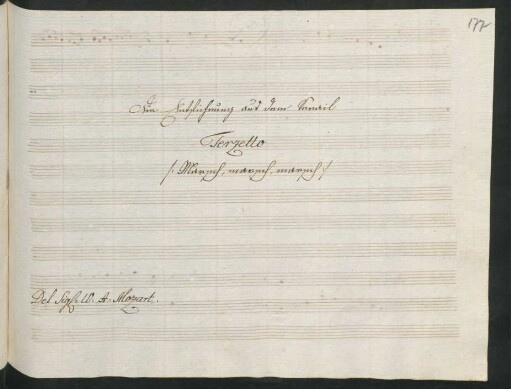 177
Die Entführung aus dem Serail
Terzetto
/: Marsch, marsch, marsch :/
Del Sigr. W. A. Mozart.